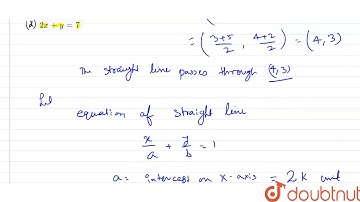 (d) 2x + y = 7
= (3+5/2, 4+2/2) = (4, 3)
The straight line passes through (4, 3)
Let
equation of straight line
x/a + y/b = 1
a = intercept on x-axis = 2k unit
doubtnut